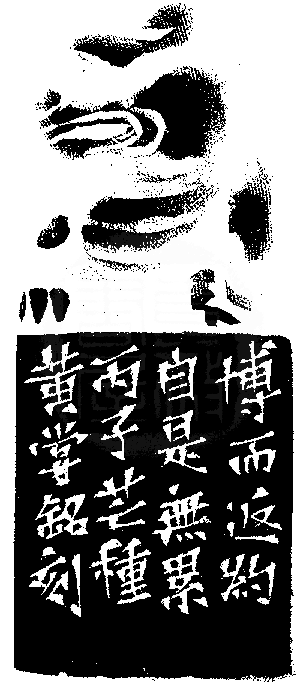 博而返約
自是無累
丙子芒種
黃嘗銘刻